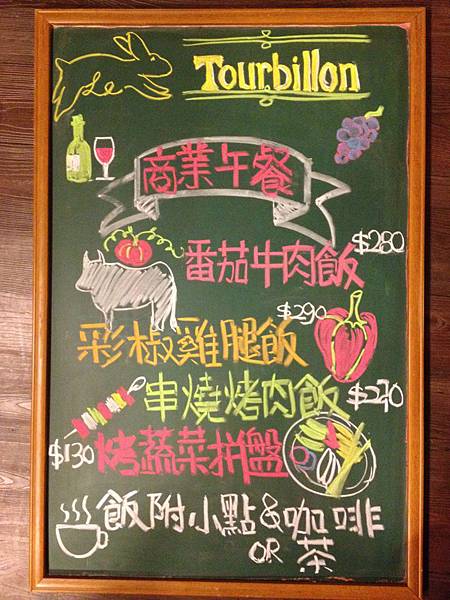 Le
Tourbillon
商業午餐
番茄牛肉飯 $280
彩椒雞腿飯 $290
串燒烤肉飯 $270
$130 烤蔬菜拼盤
飯附小點&咖啡
OR 茶